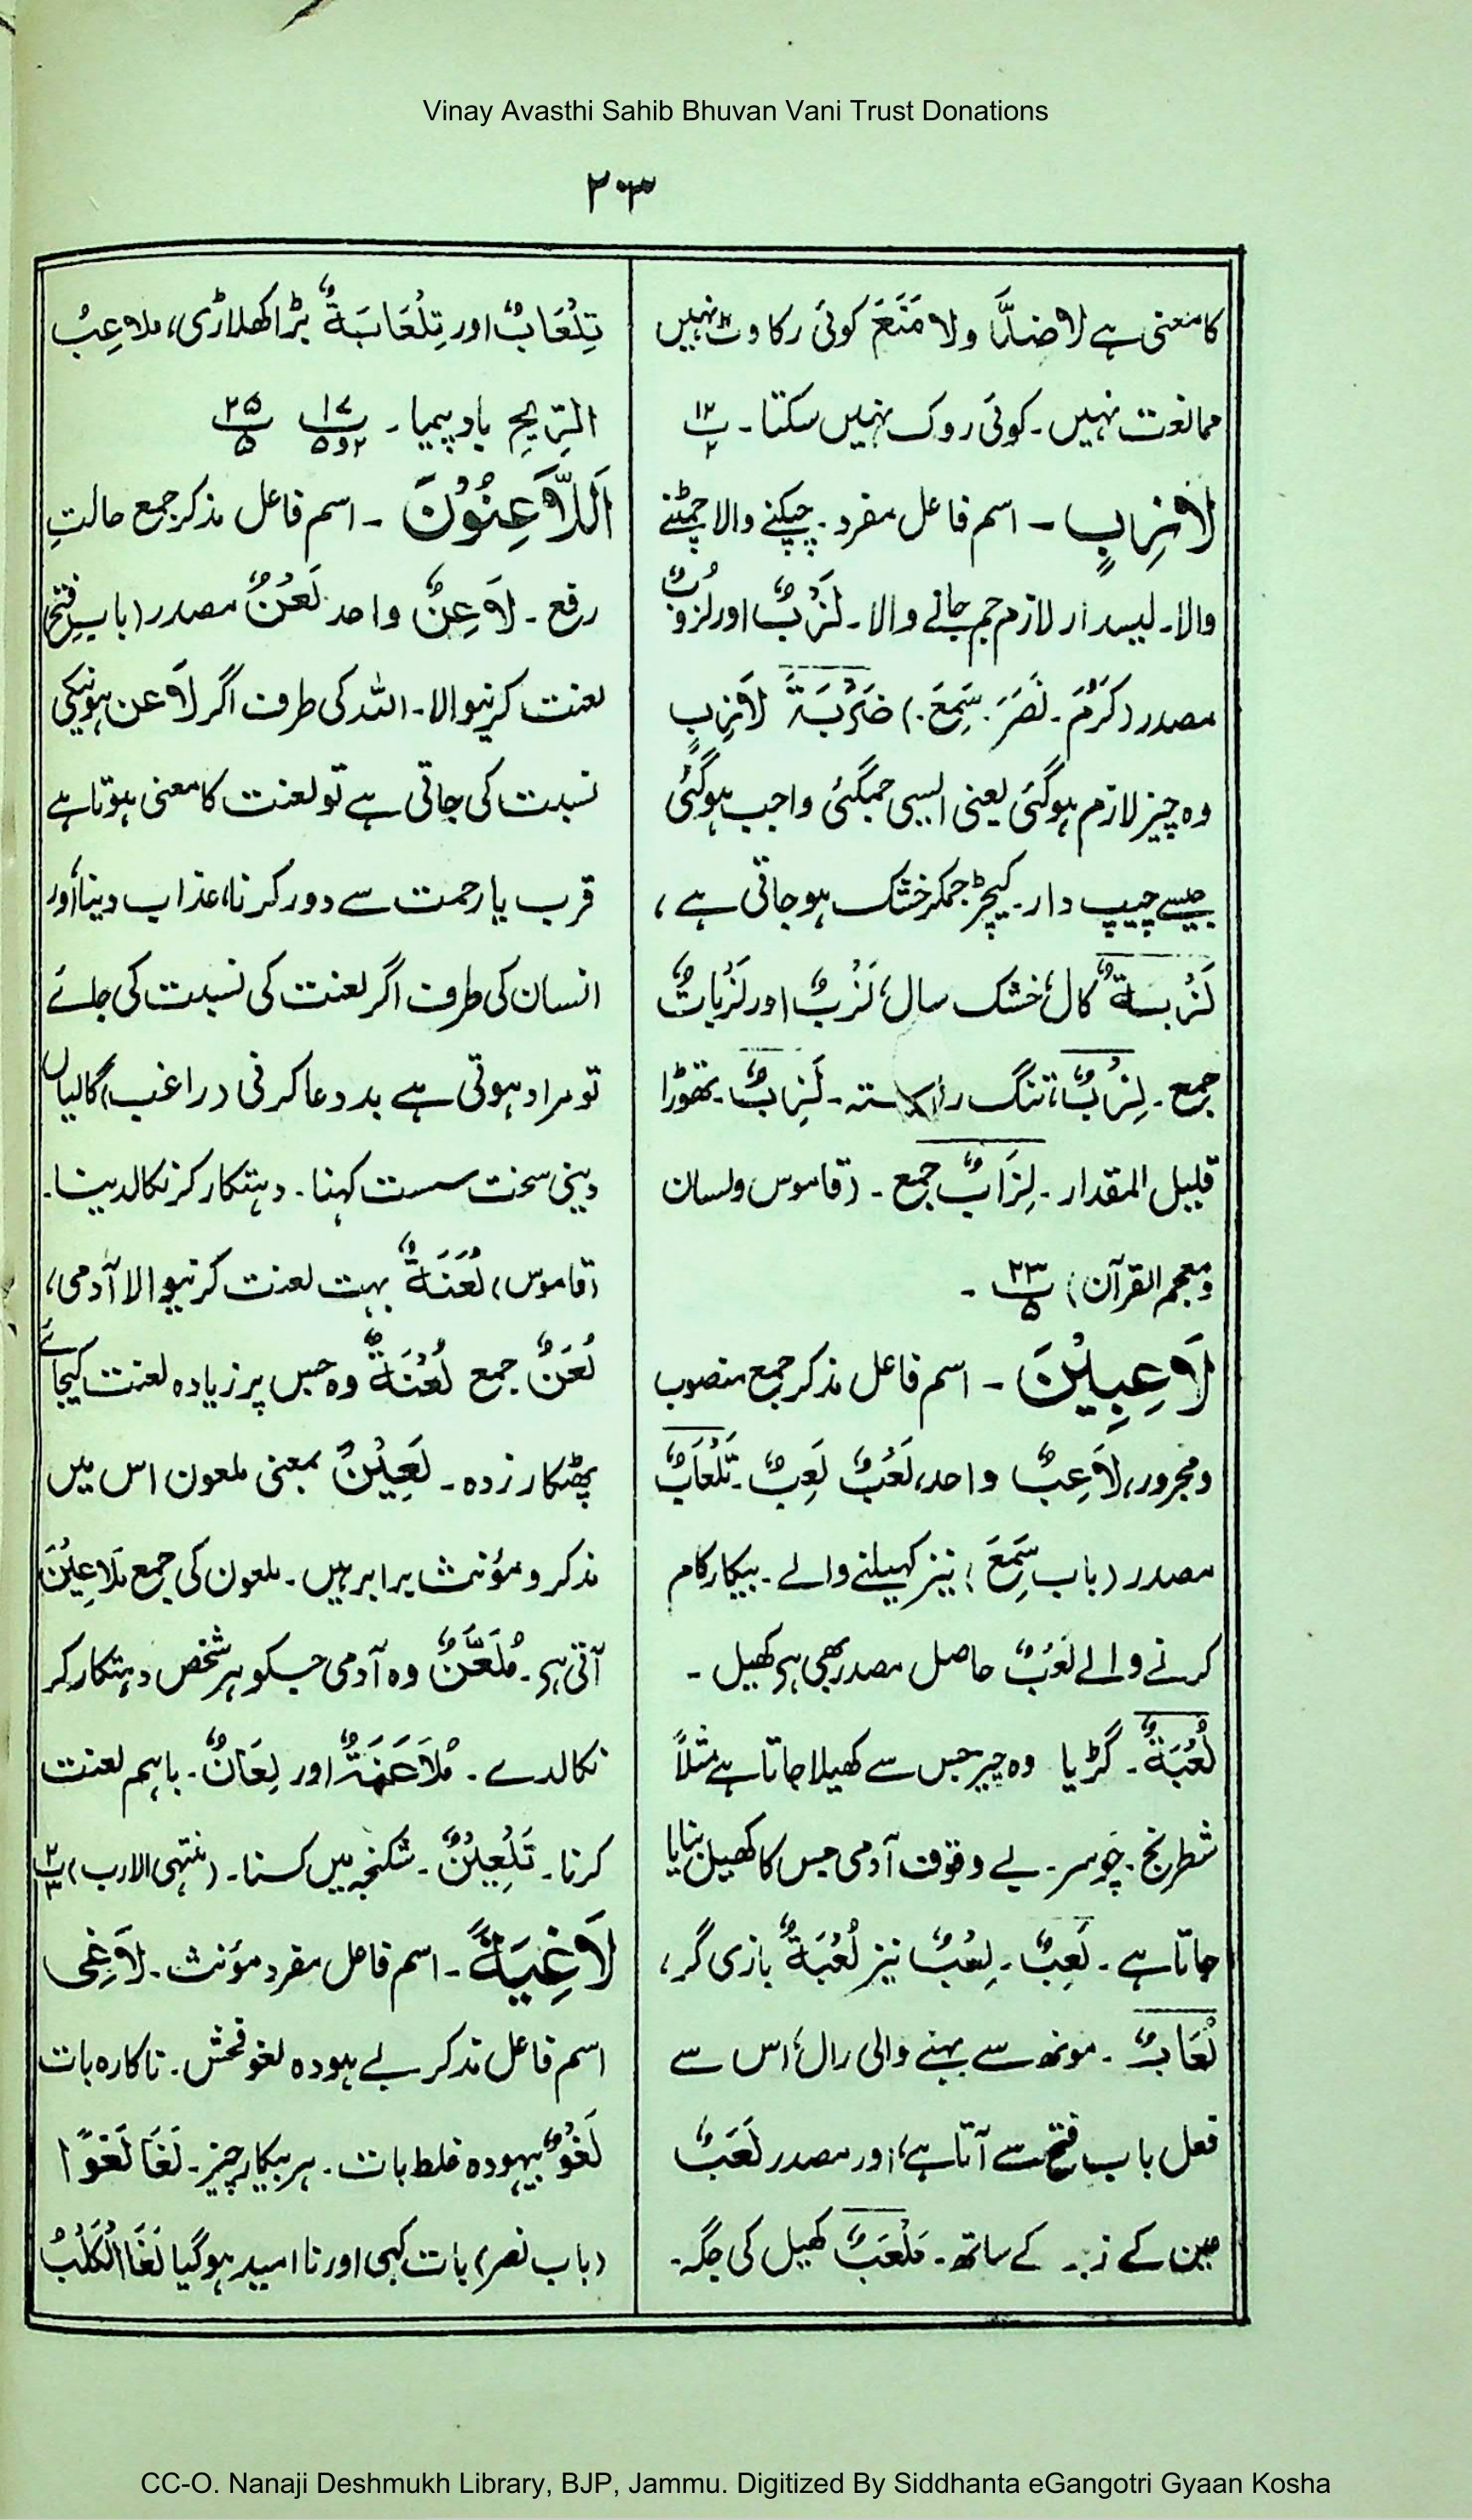 Vinay Avasthi Sahib Bhuvan Vani Trust Donations
۲۰۳
کا معنی ہے لا ضدًّا ولا مَنَعَ کوئی رکاوٹ نہیں
ممانعت نہیں۔ کوئی روک نہیں سکتا۔ پ ۱۲ ۲
لَازِبٍ۔ اسم فاعل مفرد۔ چپکنے والا چمٹنے
والا۔ لیسدار لازم جم جانے والا۔ لَزْبٌ اور لُزُوْبٌ
مصدر (کَرُمَ۔ نَصَرَ۔ سَمِعَ۔) ضَرْبَۃَ لَازِبٍ
وہ چیز لازم ہوگئی یعنی ایسی جمگئی واجب ہوگئی
جیسے چیپ دار۔ کیچڑ جمکر خشک ہو جاتی ہے،
لَزْبَۃٌ کال، خشک سال، لَزْبٌ اور لَزْبَاتٌ
جمع۔ لِزْبٌ، تنگ راستہ۔ لَزِبٌ۔ تھوڑا
قلیل المقدار۔ لِزَابٌ جمع۔ (قاموس ولسان
ومعجم القرآن) ۲۳ ۵ ۔
لَاعِبِیْنَ۔ اسم فاعل مذکر جمع منصوب
ومجرور، لَاعِبٌ واحد، لَعْبٌ لَعِبٌ۔ تَلْعَابٌ
مصدر (باب سَمِعَ) نیز کہیلنے والے۔ بیکار کام
کرنے والے لَعْبٌ حاصل مصدر بھی ہے کھیل۔
لُعْبَۃٌ۔ گڑیا وہ چیز جس سے کھیلا جاتا ہے مثلاً
شطرنج۔ چوسر۔ بے وقوف آدمی جس کا کھیل بنایا
جاتا ہے۔ لَعِبٌ۔ لِعْبٌ نیز لُعْبَۃٌ بازی گر،
لُعَابٌ۔ مونھ سے بہنے والی رال، اس سے
فعل باب فتح سے آتا ہے، اور مصدر لَعَبٌ
عین کے زبر کے ساتھ۔ مَلْعَبٌ کھیل کی جگہ۔
تِلْعَابٌ اور تِلْعَابَۃٌ بڑا کھلاڑی، ملاعِبُ
الرِّیحِ بادپیما۔ ۱۷ ۲ و ۵ ۲۵ ۵
اَللَّاعِنُوْنَ۔ اسم فاعل مذکر جمع حالتِ
رفع۔ لَاعِنٌ واحد لَعْنٌ مصدر (باب فتح)
لعنت کرنیوالا۔ اللہ کی طرف اگر لَاعن ہونیکی
نسبت کی جاتی ہے تو لعنت کا معنی ہوتا ہے
قرب یا رحمت سے دور کرنا، عذاب دینا، اور
انسان کی طرف اگر لعنت کی نسبت کی جائے
تو مراد ہوتی ہے بد دعا کرنی (راغب) گالیاں
دینی سخت سست کہنا۔ دہتکار کر نکالدینا۔
(قاموس) لُعَنَۃٌ بہت لعنت کرنیوالا آدمی،
لُعَنٌ جمع لُعْنَۃٌ وہ جس پر زیادہ لعنت کیجائے
پھٹکار زدہ۔ لَعِیْنٌ بمعنی ملعون اس میں
مذکر و مؤنث برابر ہیں۔ ملعون کی جمع مَلَاعِیْنَ
آتی ہے۔ مُلَعَّنٌ وہ آدمی جسکو ہر شخص دہتکار کر
نکالدے۔ مُلَاعَنَۃٌ اور لِعَانٌ۔ باہم لعنت
کرنا۔ تَلْعِیْنٌ۔ شکنجہ میں کسنا۔ (منتہی الارب) پ ۲ ۳
لَاغِیَۃً۔ اسم فاعل مفرد مؤنث۔ لَاغِی
اسم فاعل مذکر بے ہودہ لغو فحش۔ ناکارہ بات
لَغْوٌ بیہودہ غلط بات۔ ہر بیکار چیز۔ لَغَا لَغْوًا
(باب نصر) بات کہی اور نا امید ہوگیا لَغَا الْکَلْبُ
CC-O. Nanaji Deshmukh Library, BJP, Jammu. Digitized By Siddhanta eGangotri Gyaan Kosha